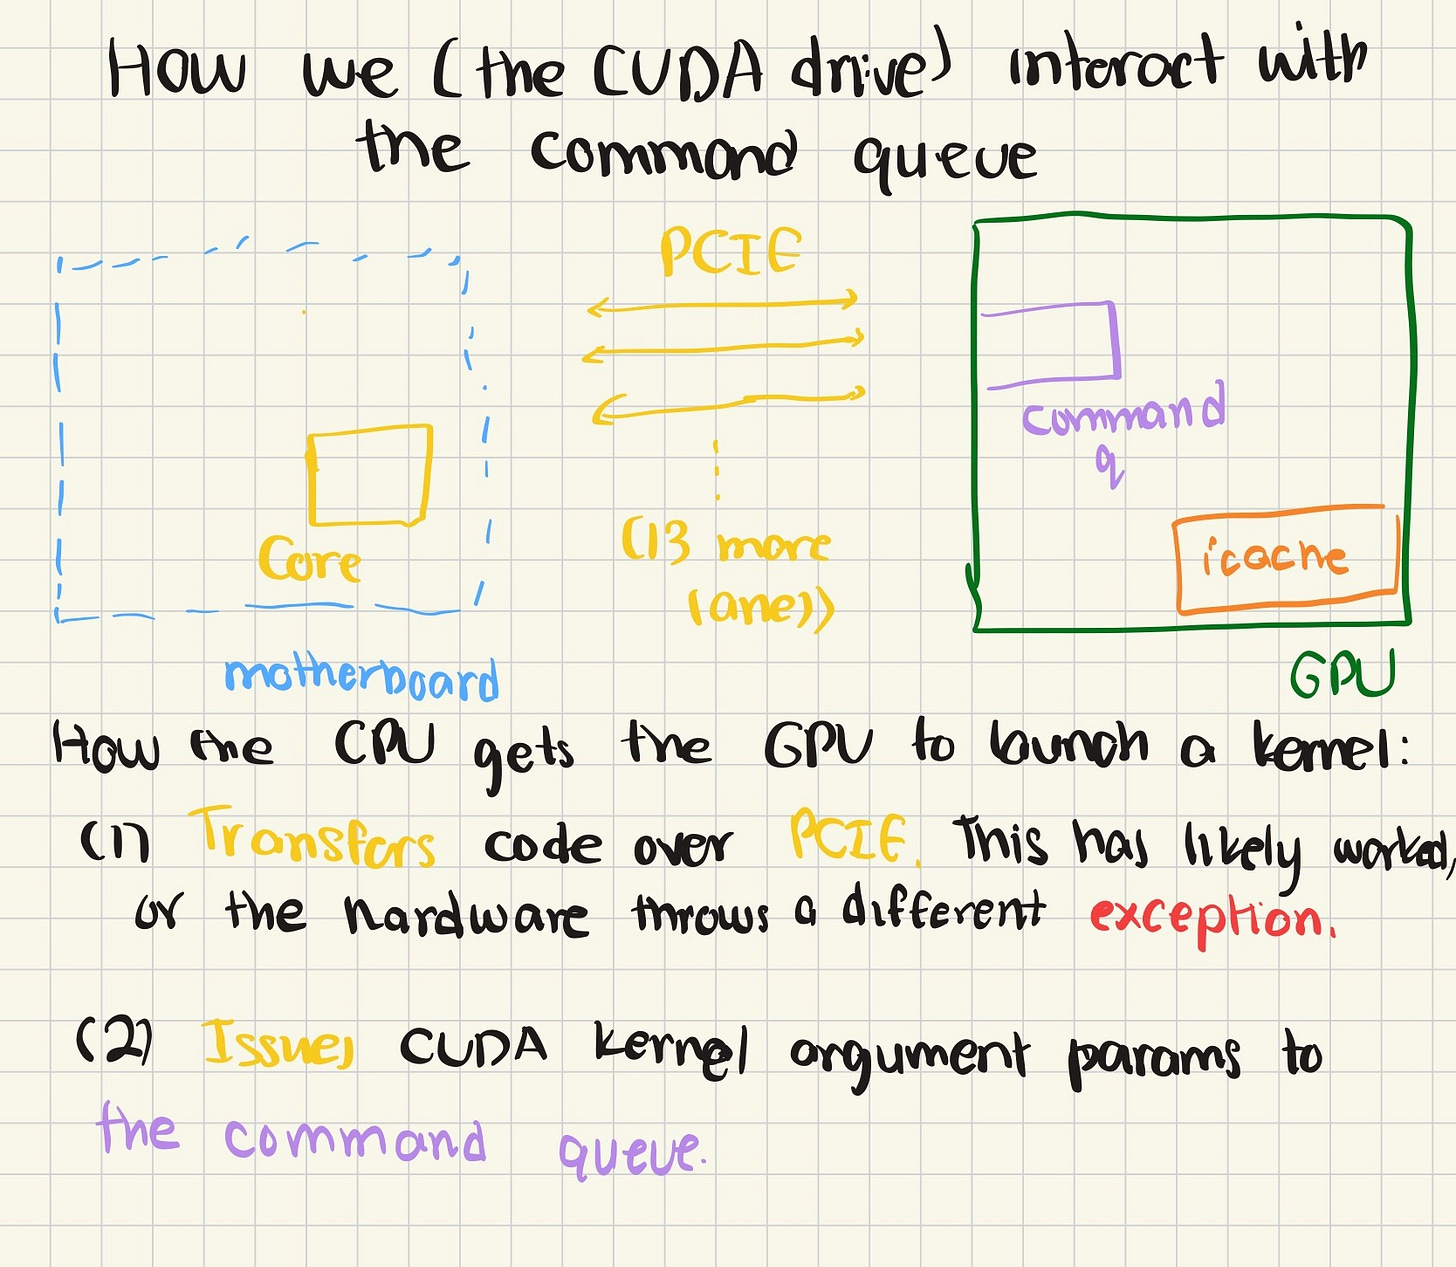 How we (the CUDA drive) interact with
the command queue
PCIE
command
q
icache
Core
(13 more
lane))
motherboard
GPU
How the CPU gets the GPU to launch a kernel:
(1) Transfers code over PCIE. This has likely worked,
or the hardware throws a different exception.
(2) Issues CUDA kernel argument params to
the command queue.